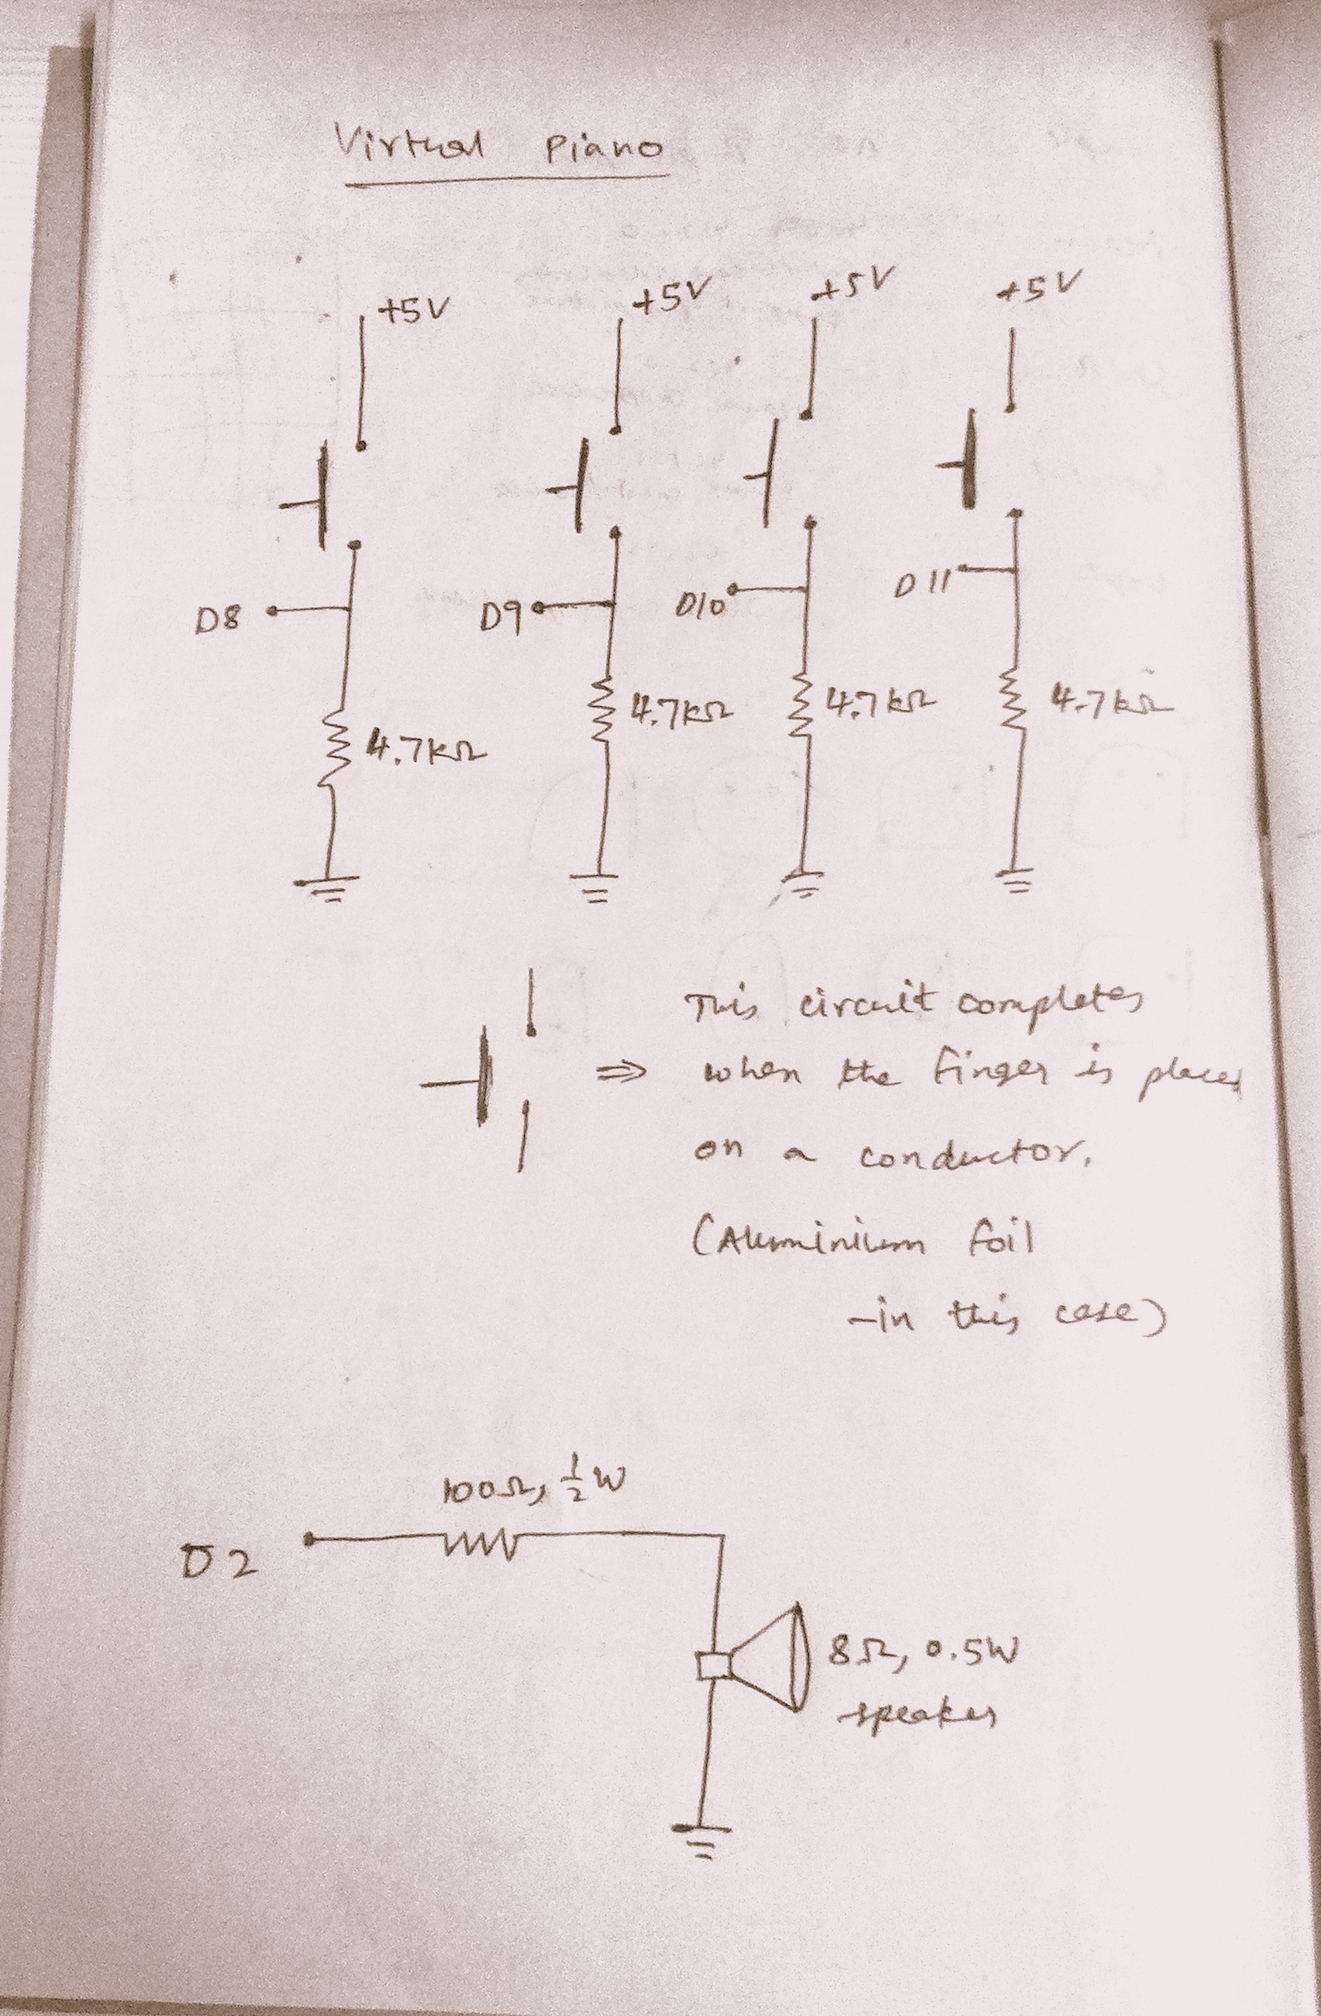 Virtual Piano
+5V +5V +5V +5V
D8 D9 D10 D11
4.7kΩ 4.7kΩ 4.7kΩ 4.7kΩ
⇒ This circuit completes
when the finger is placed
on a conductor.
(Aluminium foil
-in this case)
100Ω, 1/2 W
D2
8Ω, 0.5W
speaker